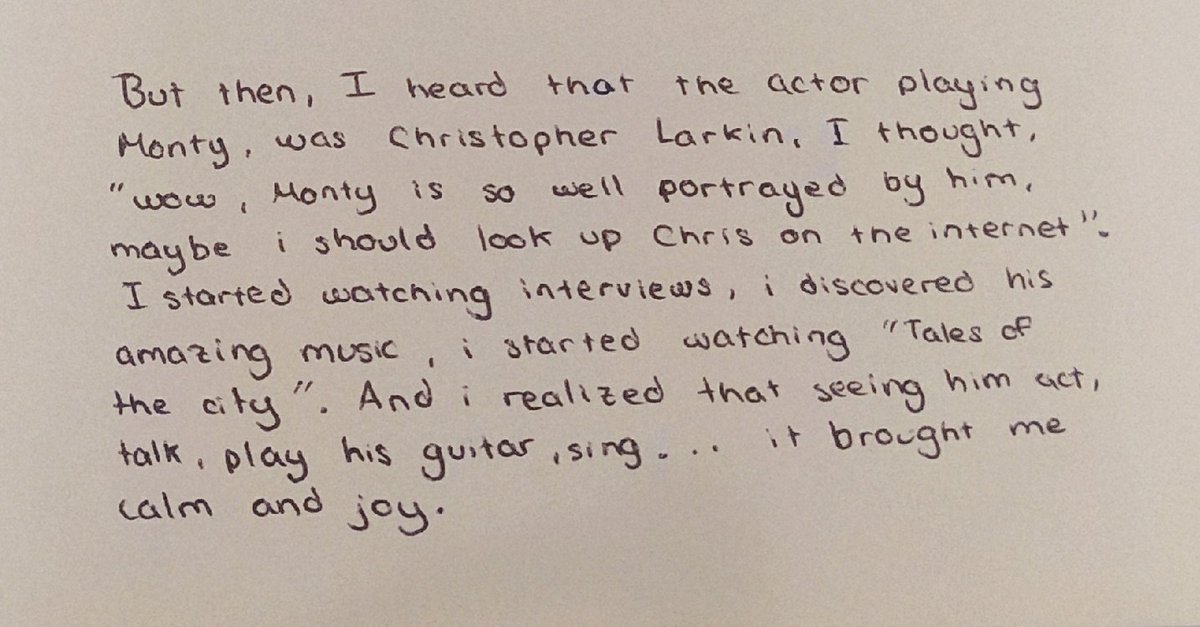 But then, I heard that the actor playing
Monty, was Christopher Larkin, I thought,
"wow, Monty is so well portrayed by him,
maybe i should look up Chris on the internet".
I started watching interviews, i discovered his
amazing music, i started watching "Tales of
the city". And i realized that seeing him act,
talk, play his guitar, sing... it brought me
calm and joy.